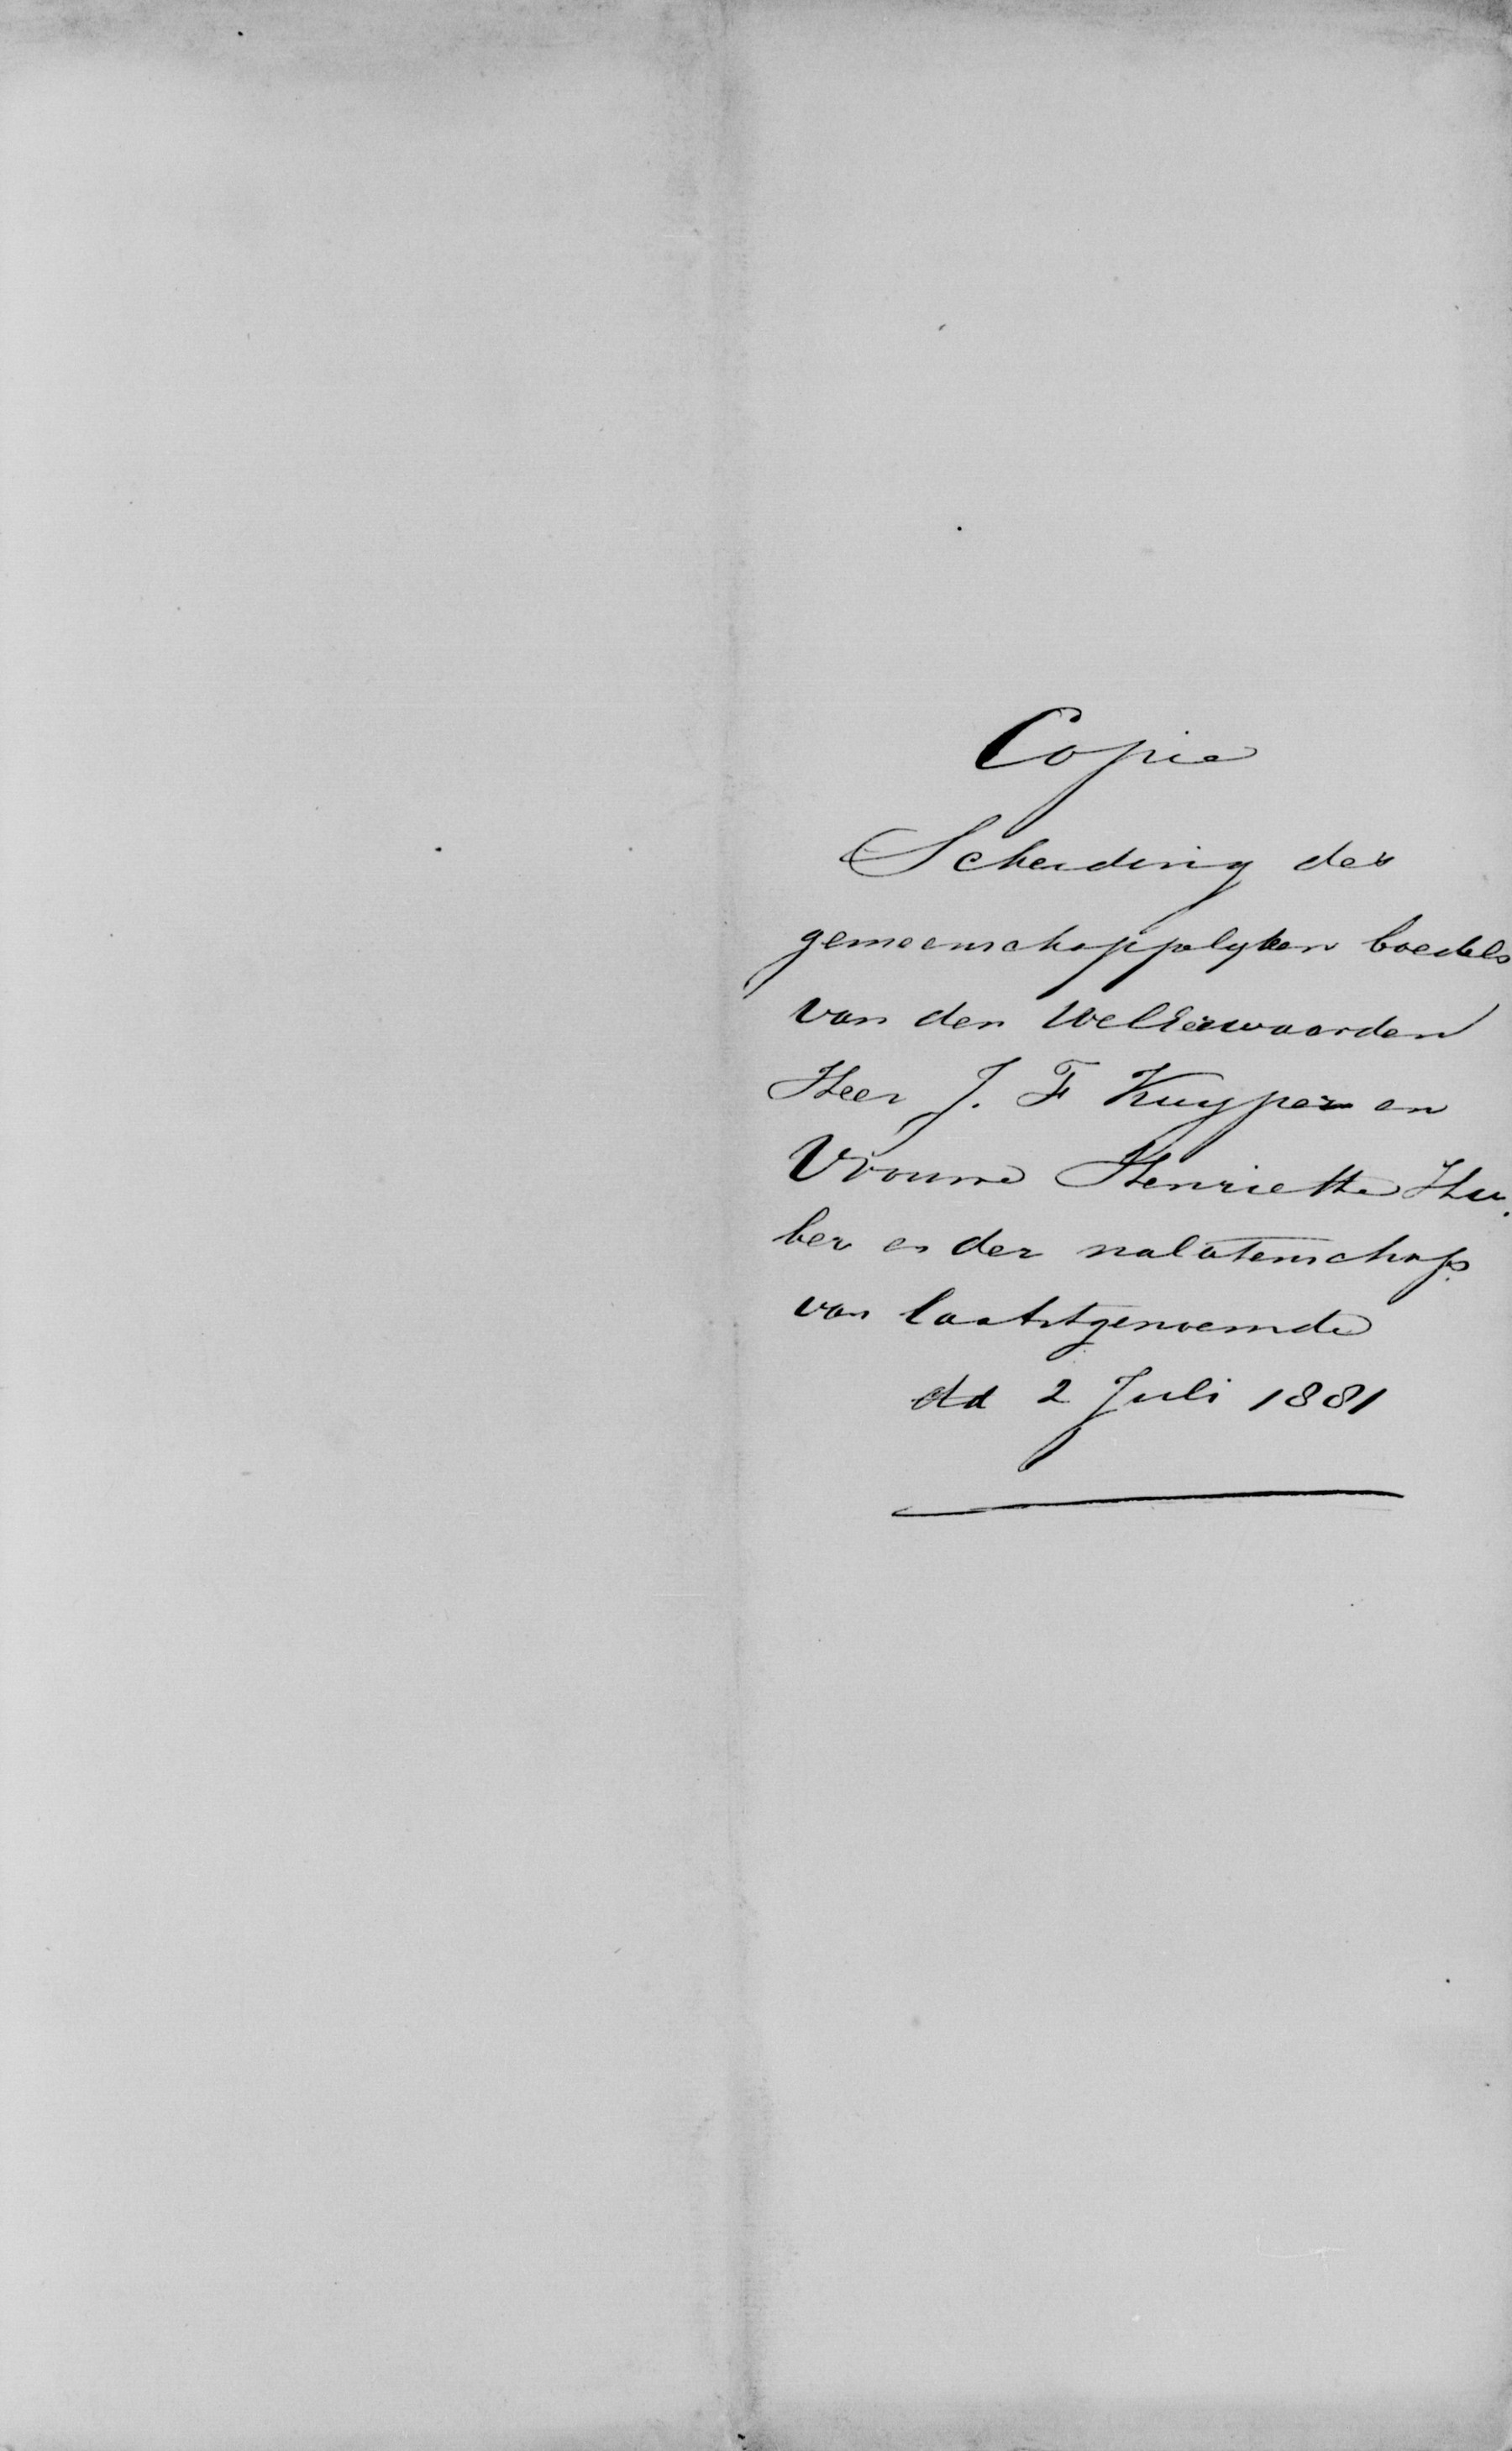 Copie
Scheiding des
gemeenschappelyken boedels
van den WelEerwaarden
Heer J. F Kuyper en
Vrouwe Henriette Hu.
ber en der nalatenschap
van laatstgenoemde
dd 2 Juli 1881